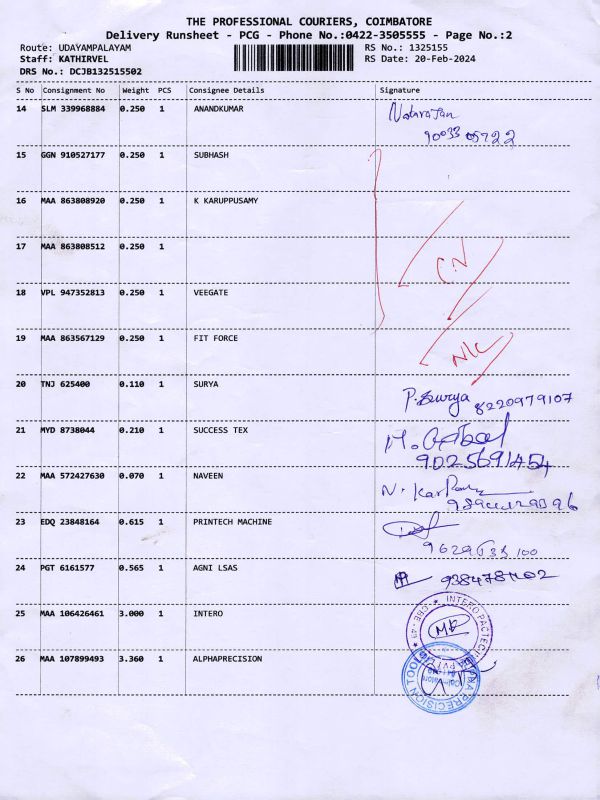 THE PROFESSIONAL COURIERS, COIMBATORE
Delivery Runsheet - PCG - Phone No.:0422-3505555 - Page No.:2
Route: UDAYAMPALAYAM RS No.: 1325155
Staff: KATHIRVEL RS Date: 20-Feb-2024
DRS No.: DCJB132515502
S No Consignment No Weight PCS Consignee Details Signature
14 SLM 339968884 0.250 1 ANANDKUMAR Natarajan
90033 05722
15 GGN 910527177 0.250 1 SUBHASH
16 MAA 863808920 0.250 1 K KARUPPUSAMY
17 MAA 863808512 0.250 1
18 VPL 947352813 0.250 1 VEEGATE
19 MAA 863567129 0.250 1 FIT FORCE
20 TNJ 625400 0.110 1 SURYA P. Surya 8220979107
21 MYD 8738044 0.210 1 SUCCESS TEX
9025691454
22 MAA 572427630 0.070 1 NAVEEN
23 EDQ 23848164 0.615 1 PRINTECH MACHINE
24 PGT 6161577 0.565 1 AGNI LSAS
25 MAA 106426461 3.000 1 INTERO
26 MAA 107899493 3.360 1 ALPHAPRECISION